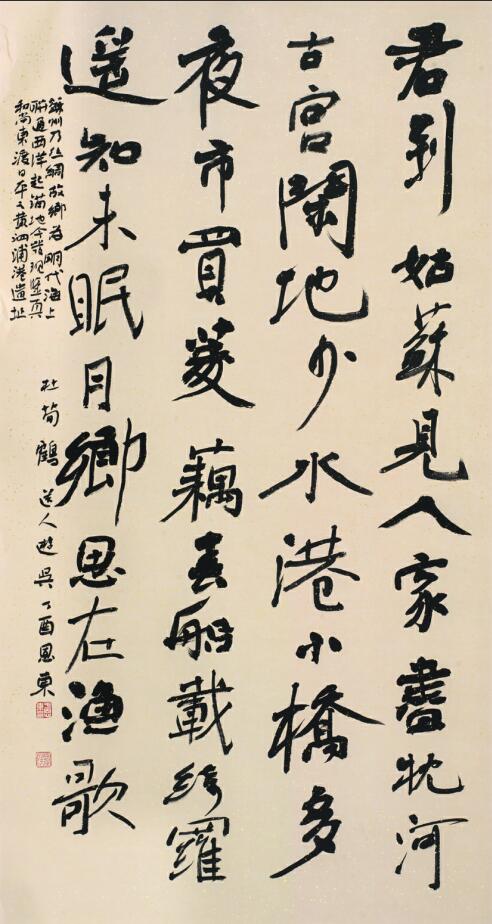 君到姑蘇見人家盡枕河
古宮閑地少水港小橋多
夜市買菱藕春船載綺羅
遥知未眠月鄉思在渔歌
蘇州乃丝綢故鄉為明代海上
聨通西洋起錨地今發現鋻真
和尚東渡日本之黄泗浦港遺址
杜荀鶴 送人遊吳 丁酉恩東